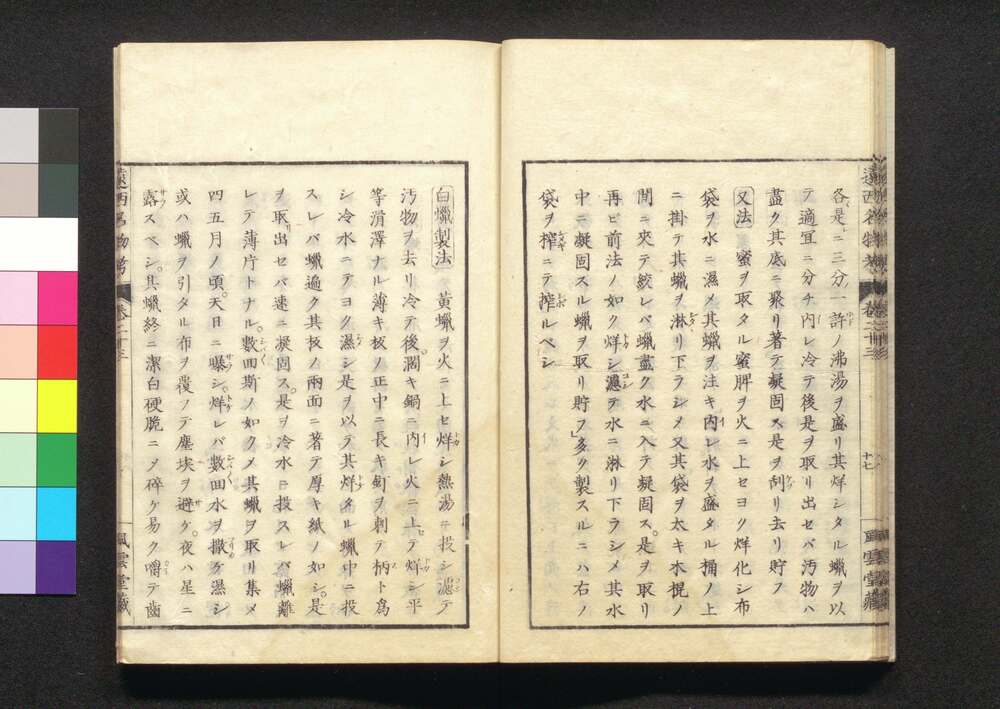 各是ニ三分一許ノ沸湯ヲ盛リ其烊シタル蝋ヲ以
テ適冝ニ分チ内レ冷テ後是ヲ取リ出セバ汚物ハ
盡ク其底ニ聚リ著テ凝固ス是ヲ刮リ去リ貯フ
又法 蜜ヲ取タル蜜脾ヲ火ニ上セヨク烊化シ布
袋ヲ水ニ濕メ其蝋ヲ注キ内レ水ヲ盛タル桶ノ上
ニ掛テ其蝋ヲ淋リ下ラシメ又其袋ヲ太キ木棍ノ
間ニ夾テ絞レバ蝋盡ク水ニ入テ凝固ス。是ヲ取リ
再ビ前法ノ如ク烊シ濾テ水ニ淋リ下ラシメ其水
中ニ凝固スル蝋ヲ取リ貯フ」多ク製スルニハ右ノ
袋ヲ搾ニテ搾ルベシ
白蝋製法 黄蝋ヲ火ニ上セ烊シ熱湯ニ投シ濾テ
汚物ヲ去リ冷テ後。濶キ鍋ニ内レ火ニ上セテ烊シ平
等滑澤ナル薄キ板ノ正中ニ長キ釘ヲ刺テ柄ト爲
シ冷水ニテヨク濕シ是ヲ以テ其烊タル蝋中ニ投
スレバ蝋遍ク其板ノ兩面ニ著テ厚キ紙ノ如シ。是
ヲ取出セバ速ニ凝固ス。是ヲ冷水ニ投スレバ蝋離
レテ薄片トナル。數回斯ノ如クメ其蝋ヲ取リ集メ
四五月ノ頃。天日ニ曝シ。烊レバ數回水ヲ撒ケ濕シ
或ハ蝋ヲ引タル布ヲ覆フテ塵埃ヲ避ケ。夜ハ星ニ
露スベシ。其蝋終ニ潔白硬脆ニメ碎ケ易ク嚼テ齒
卷二十三
十七
風雲堂藏